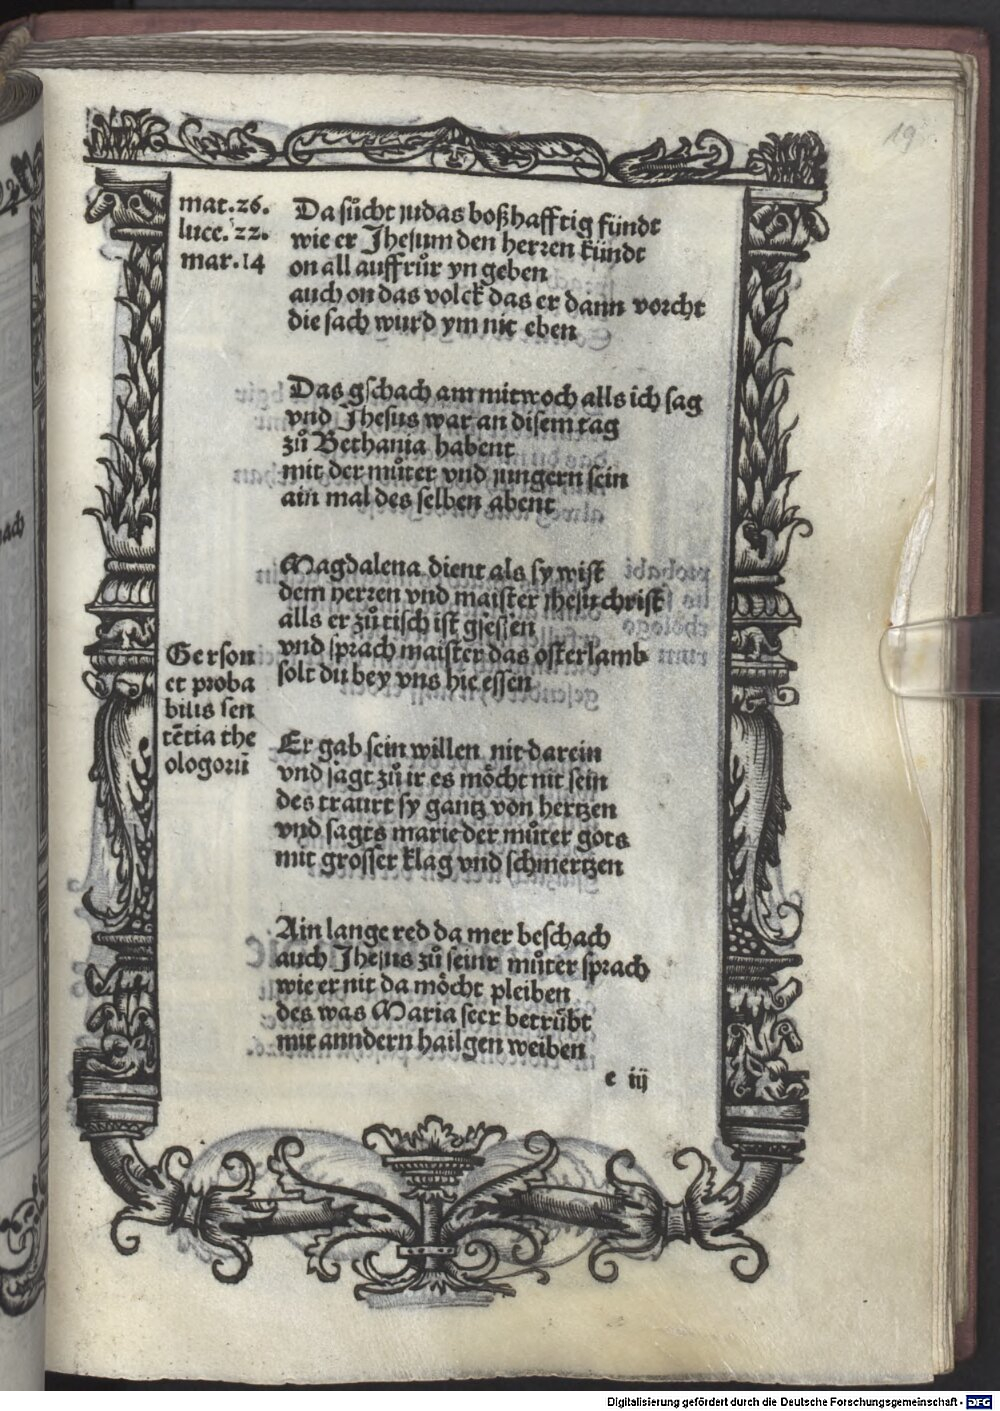 19
mat.26.
luce.22.
mar.14
Da sůcht judas boßhafftig fündt
wie er Jhesum den herren kündt
on all auffrůr yn geben
auch on das volck das er dann vorcht
die sach wurd ym nit eben
Das gschach am mitwoch alls ich sag
vnd Jhesus war an disem tag
zů Bethania habent
mit der můter vnd jungern sein
ain mal des selben abent
Magdalena dient als sy wist
dem herren vnd maister jhesu christ
alls er zů tisch ist gsessen
vnd sprach maister das osterlamb
solt du bey vns hie essen
Gerson
et proba
bilis sen
tētia the
ologorū
Er gab sein willen nit darein
vnd sagt zů ir es möcht nit sein
des traurt sy gantz von hertzen
vnd sagts marie der můter gots
mit grosser klag vnd schmertzen
Ain lange red da mer beschach
auch Jhesus zů seinr můter sprach
wie er nit da möcht pleiben
des was Maria seer betrübt
mit anndern hailgen weiben
e iij
Digitalisierung gefördert durch die Deutsche Forschungsgemeinschaft - DFG